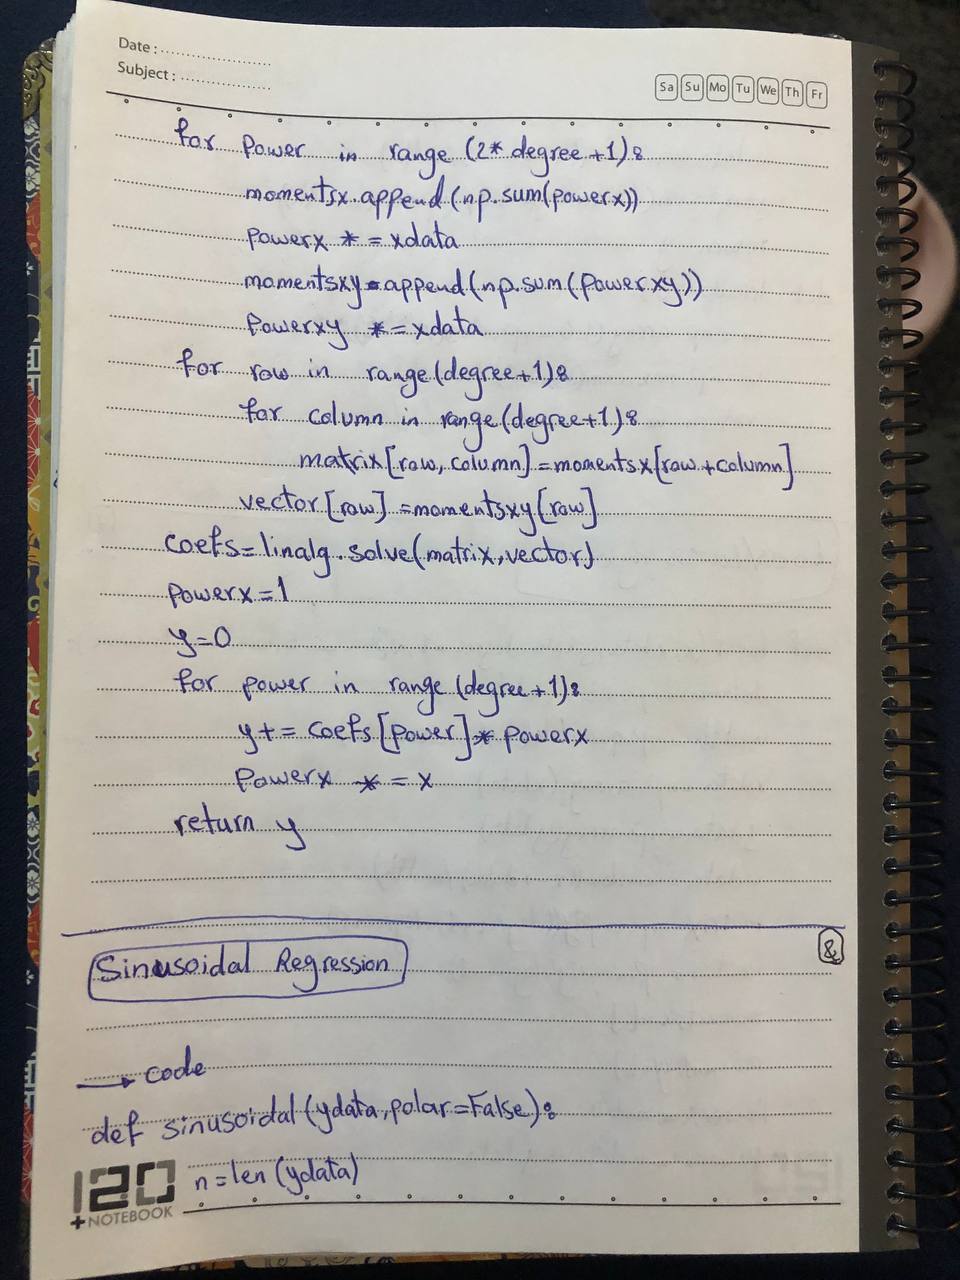 Date : ..............................
Subject : ........................
Sa Su Mo Tu We Th Fr
for power in range (2* degree +1):
momentsx.append(np.sum(powerx))
powerx *= xdata
momentsxy.append(np.sum(powerxy))
powerxy *= xdata
for row in range(degree+1):
for column in range(degree+1):
matrix[row, column] = momentsx[row + column]
vector[row] = momentsxy[row]
coefs=linalg.solve(matrix,vector)
powerx=1
y=0
for power in range (degree+1):
y+= coefs[power]* powerx
powerx *= x
return y
&
Sinusoidal Regression
→ code
def sinusoidal(ydata,polar=False):
n=len(ydata)
120
+NOTEBOOK